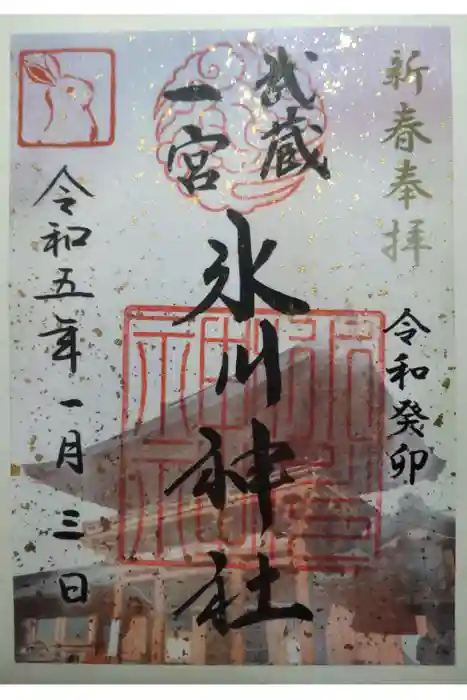 新春奉拝
令和癸卯
武蔵
一宮
氷川神社
令和五年一月三日
氷川神社